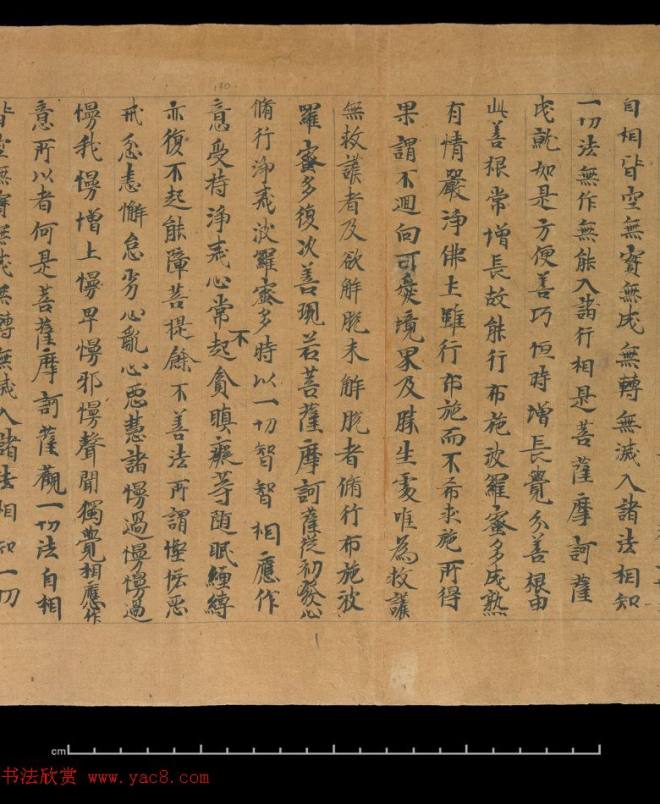 自相皆空無實無成無轉無滅入諸法相知
一切法無作無能入諸行相是菩薩摩訶薩
成就如是方便善巧恒時增長覺分善根由
此善根常增長故能行布施波羅蜜多成熟
有情嚴淨佛土雖行布施而不希求施所得
果謂不迴向可愛境界及勝生處唯為救護
無救護者及欲解脫未解脫者脩行布施波
羅蜜多復次善現若菩薩摩訶薩從初發心
脩行淨戒波羅蜜多時以一切智智相應作
意受持淨戒心常不起貪瞋癡等随眠纏縛
亦復不起能障菩提餘不善法所謂慳悋惡
戒忿恚懈怠劣心亂心惡慧諸慢過慢慢過
慢我慢增上慢卑慢邪慢聲聞獨覺相應作
意所以者何是菩薩摩訶薩觀一切法自相
皆空無實無成無轉無滅入諸法相知一切
180
cm
书法欣赏 www.yac8.com